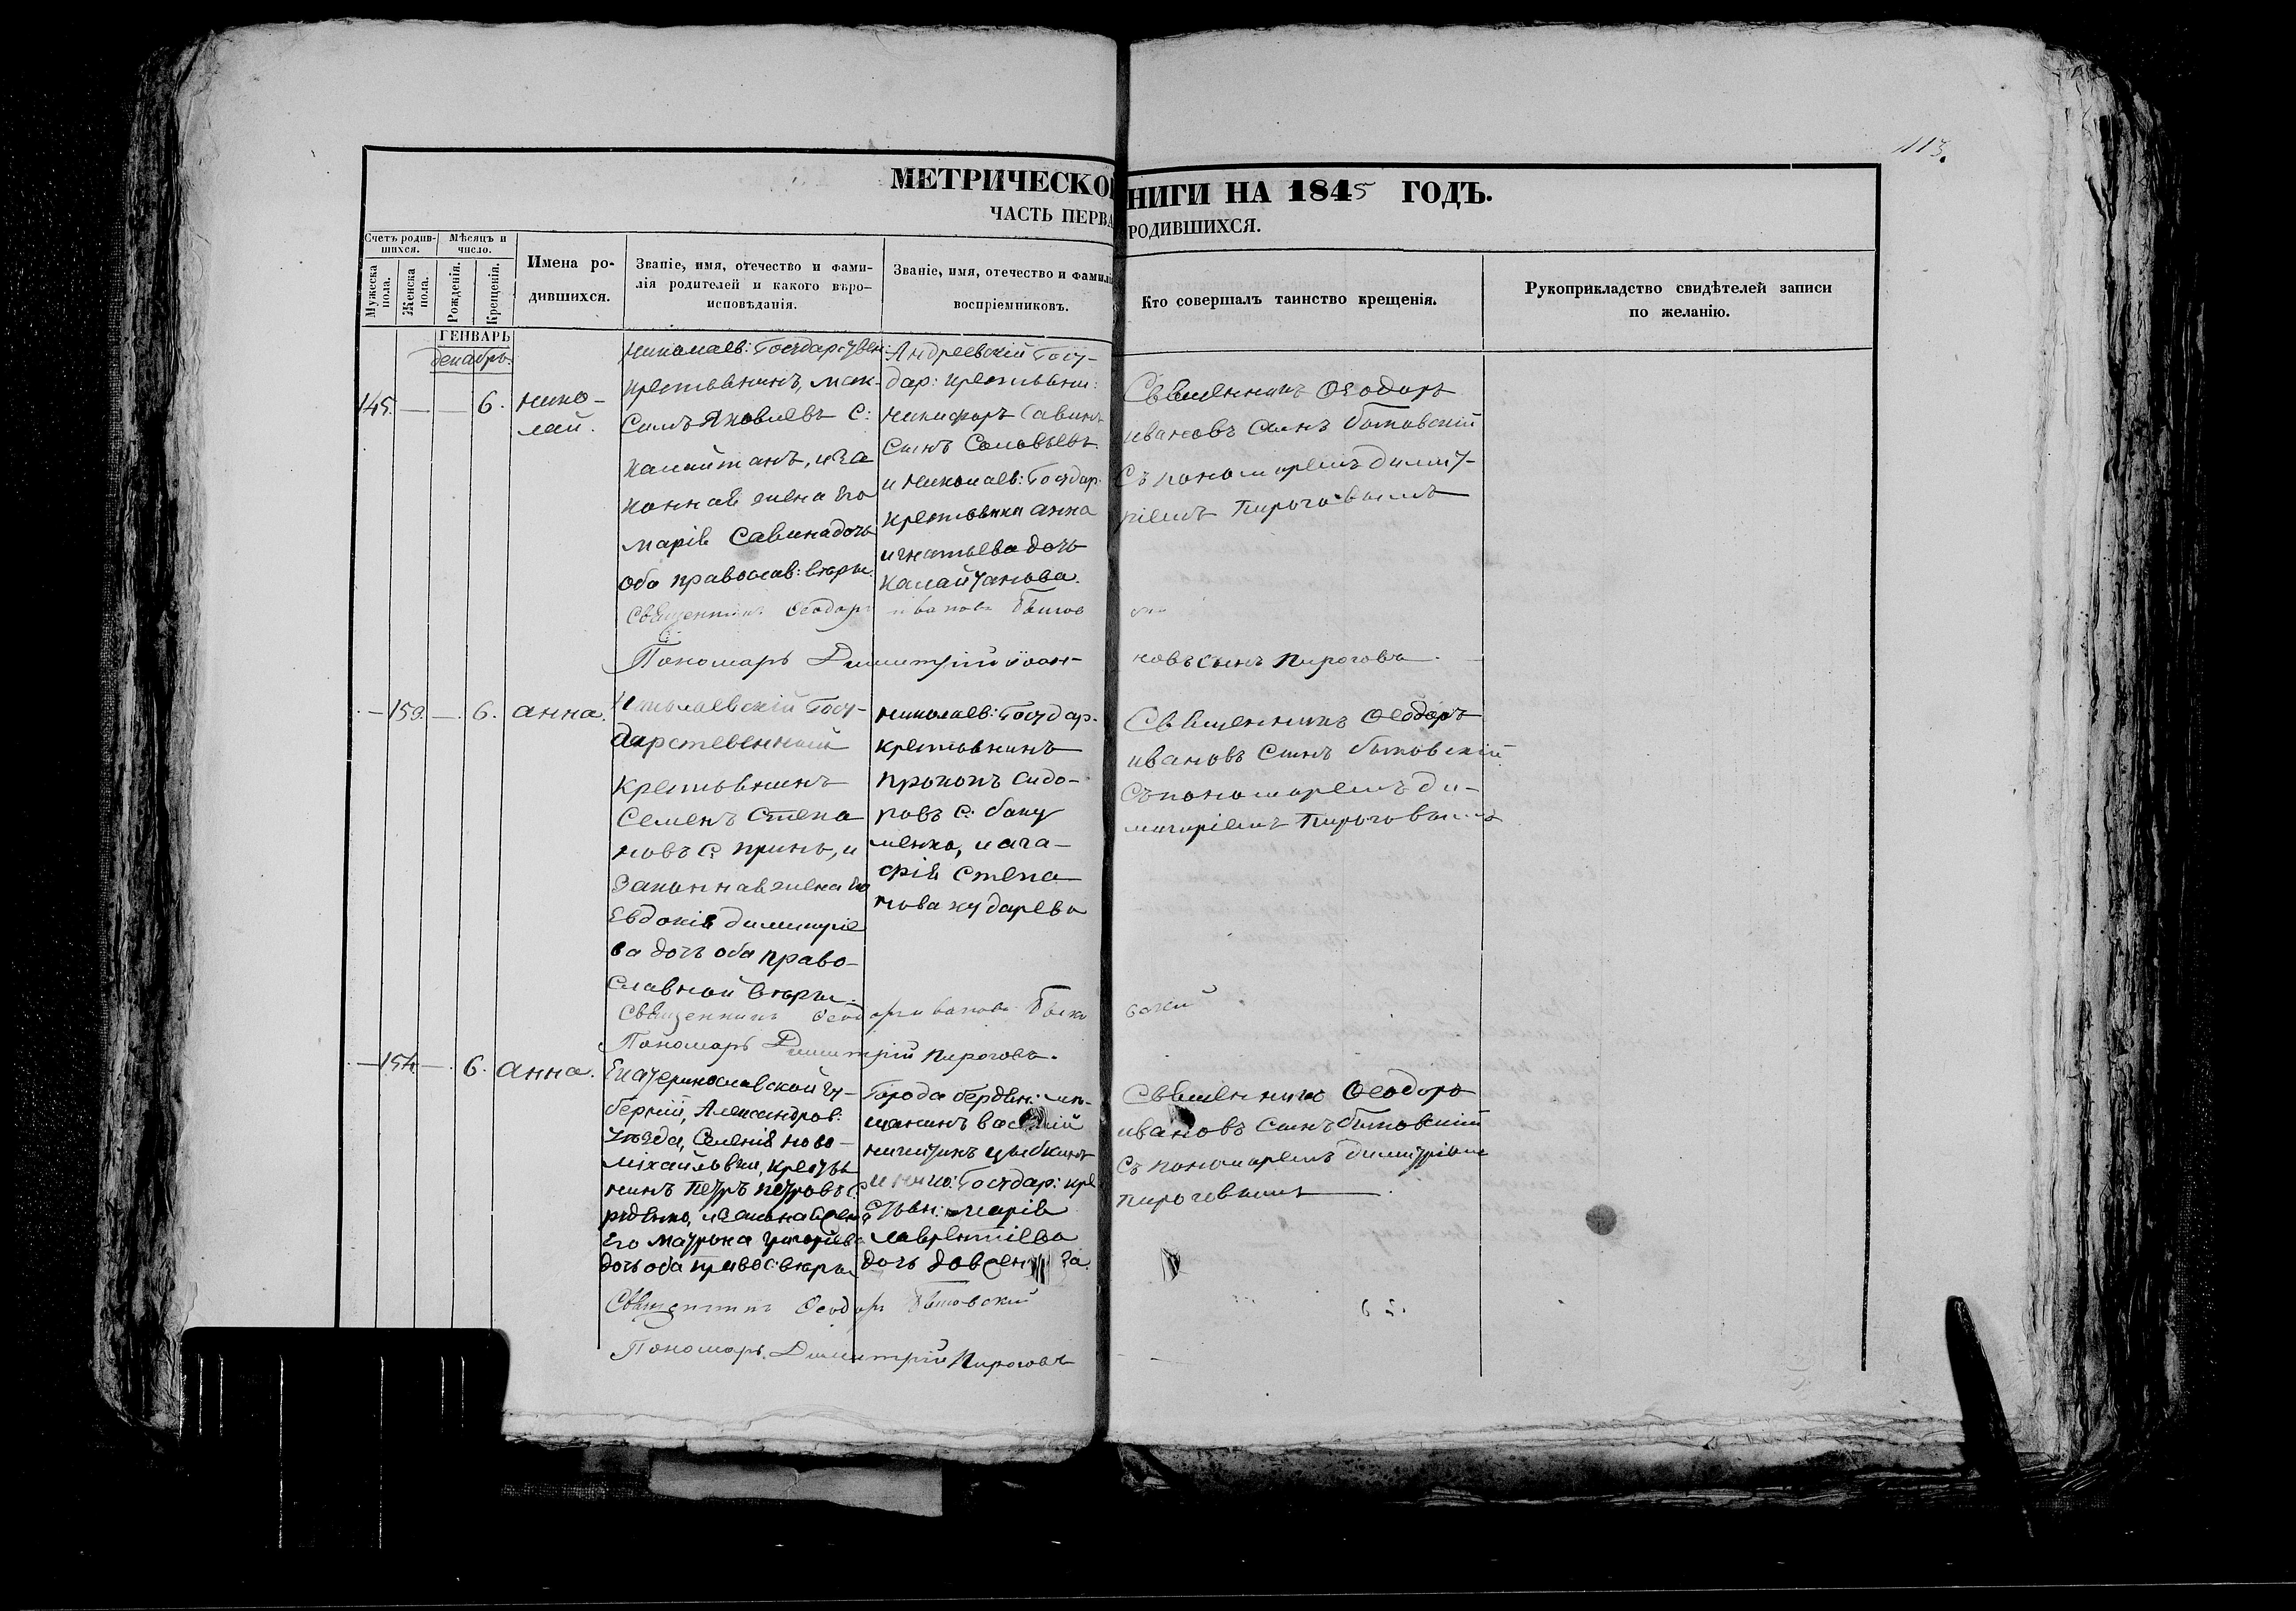 113.
МЕТРИЧЕСКО НИГИ НА 1845 ГОДЪ.
ЧАСТЬ ПЕРВА РОДИВШИХСЯ.
Счетъ родив-
шихся.
Мужеска пола.
Женска пола.
Мѣсяцъ и
число.
Рожденія.
Крещенія.
Имена ро-
дившихся.
Званіе, имя, отечество и фами-
лія родителей и какого вѣро-
исповѣданія.
Званіе, имя, отечество и фамилі
воспріемниковъ.
Кто совершалъ таинство крещенія.
Рукоприкладство свидѣтелей записи
по желанію.
ГЕНВАРЬ
декабрь.
145. — — 6. Нико-
лай.
Николаев: Государствен:
крестьянинъ, Мак-
симъ Яковлевъ С:
Калайтанъ, и за
конная жена его
Марія Савина дочь
оба православ: вѣры.
Андреевскій Госу-
дар: крестьяни:
Никифоръ Савинъ
Сынъ Соловьевъ.
и Николаев: Государ:
крестьянка Анна
Игнатьева дочь
Калайтанова.
Священникъ Ѳеодоръ
Ивановъ Сынъ Бытовскій
Съ пономаремъ Димит-
ріемъ Пироговымъ
Священникъ Ѳеодоръ Ивановъ
Пономарь Димитрій Іоан-
новъ сынъ Пироговъ.
— 153. — 6. Анна.
Николаевскій Госу-
дарственный
крестьянинъ
Семенъ Степа
новъ С. , и
Законная жена его
Евдокія Димитріе
ва дочь оба право-
славной вѣры.
Николаев: Государ:
крестьянинъ
Прокопъ Сидо-
ровъ С: Баку
менко, и Ага-
фія Степа
нова Кударева
Священникъ Ѳеодоръ
Ивановъ Сынъ Бытовскій
Съ пономаремъ Ди-
митріемъ Пироговымъ
Священникъ Ѳеодоръ Ивановъ
Пономарь Димитрій Пироговъ.
— 154 — 6. Анна.
Екатеринославской гу-
берніи, Александров:
уѣзда, Селенія Ново-
михайловки, крестья
нинъ Петръ Петровъ С:
его Матрона Григорьева
дочь оба правос: вѣры
Города Бердян: мѣ-
щанинъ Василій
Никитинъ Цыбкинъ
и Нико: Государ: кре
стьян: Марія
Лаврентіева
дочь
Священникъ Ѳеодоръ
Ивановъ Сынъ Бытовскій
Съ пономаремъ Димитріемъ
Пироговымъ.
Священникъ Ѳеодоръ Бытовскій
Пономарь Димитрій Пироговъ